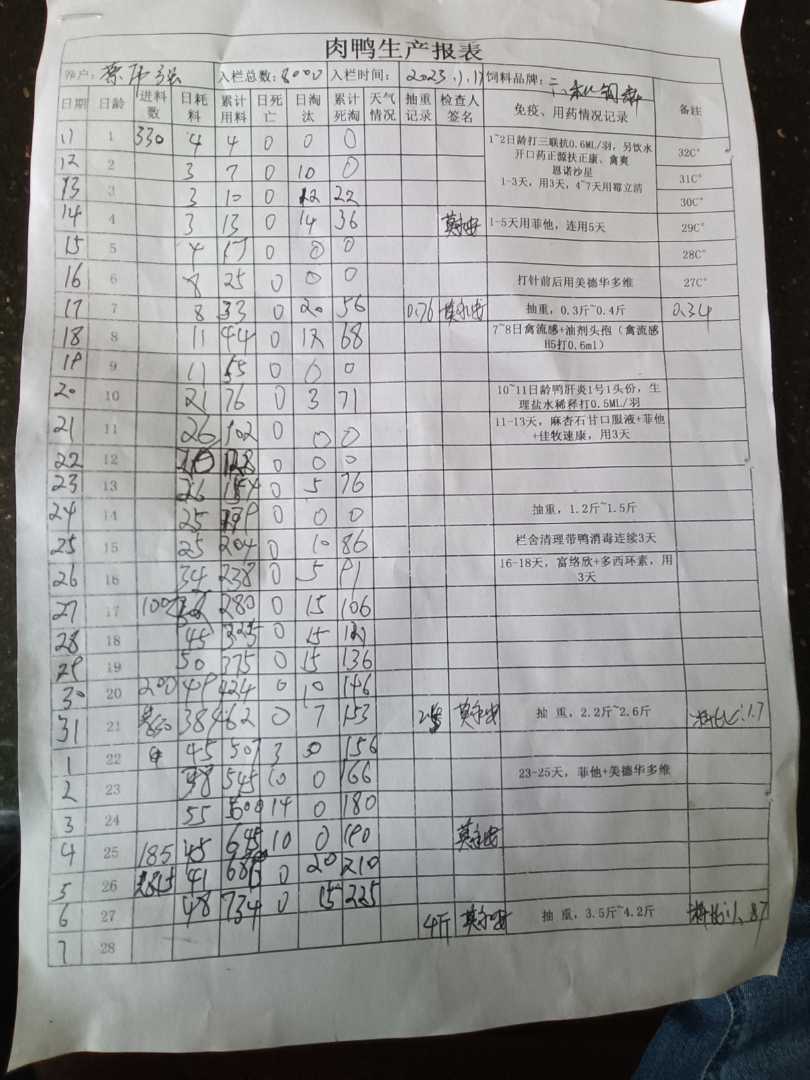 肉鸭生产报表
养户: 入栏总数:8000 入栏时间: 2023.1.11 饲料品牌:
日期 日龄 进料数 日耗料 累计用料 日死亡 日淘汰 累计死淘 天气情况 抽重记录 检查人签名 免疫、用药情况记录 备注
11 1 330 4 4 0 0 0 1~2日龄打三联抗0.6ML/羽,另饮水开口药正源扶正康、禽爽 恩诺沙星 32C°
12 2 3 7 0 10 0 1-3天,用3天,4~7天用霉立清 31C°
13 3 3 10 0 12 22 30C°
14 4 3 13 0 14 36 1-5天用菲他,连用5天 29C°
15 5 4 17 0 0 0 28C°
16 6 8 25 0 0 0 打针前后用美德华多维 27C°
17 7 8 33 0 20 56 0.76 抽重,0.3斤~0.4斤 0.34
18 8 11 44 0 12 68 7~8日禽流感+油剂头孢(禽流感H5打0.6ml)
19 9 11 55 0 0 0
20 10 21 76 0 3 71 10~11日龄鸭肝炎1号1头份,生理盐水稀释打0.5ML/羽
21 11 26 102 0 0 0 11-13天,麻杏石甘口服液+菲他+佳牧速康,用3天
22 12 128 0 0 0
23 13 26 154 0 5 76
24 14 25 179 0 0 0 抽重,1.2斤~1.5斤
25 15 25 204 0 10 86 栏舍清理带鸭消毒连续3天
26 16 34 238 0 5 91 16-18天,富络欣+多西环素,用3天
27 17 100 280 0 15 106
28 18 45 325 0 15 121
29 19 50 375 0 15 136
30 20 200 49 424 0 10 146
31 21 38 462 0 7 153 抽 重,2.2斤~2.6斤 料比:1.7
1 22 45 507 3 0 156
2 23 38 545 10 0 166 23-25天,菲他+美德华多维
3 24 55 600 14 0 180
4 25 185 45 645 10 0 190
5 26 41 686 0 20 210
6 27 48 734 0 15 225 4斤 抽 重,3.5斤~4.2斤
7 28